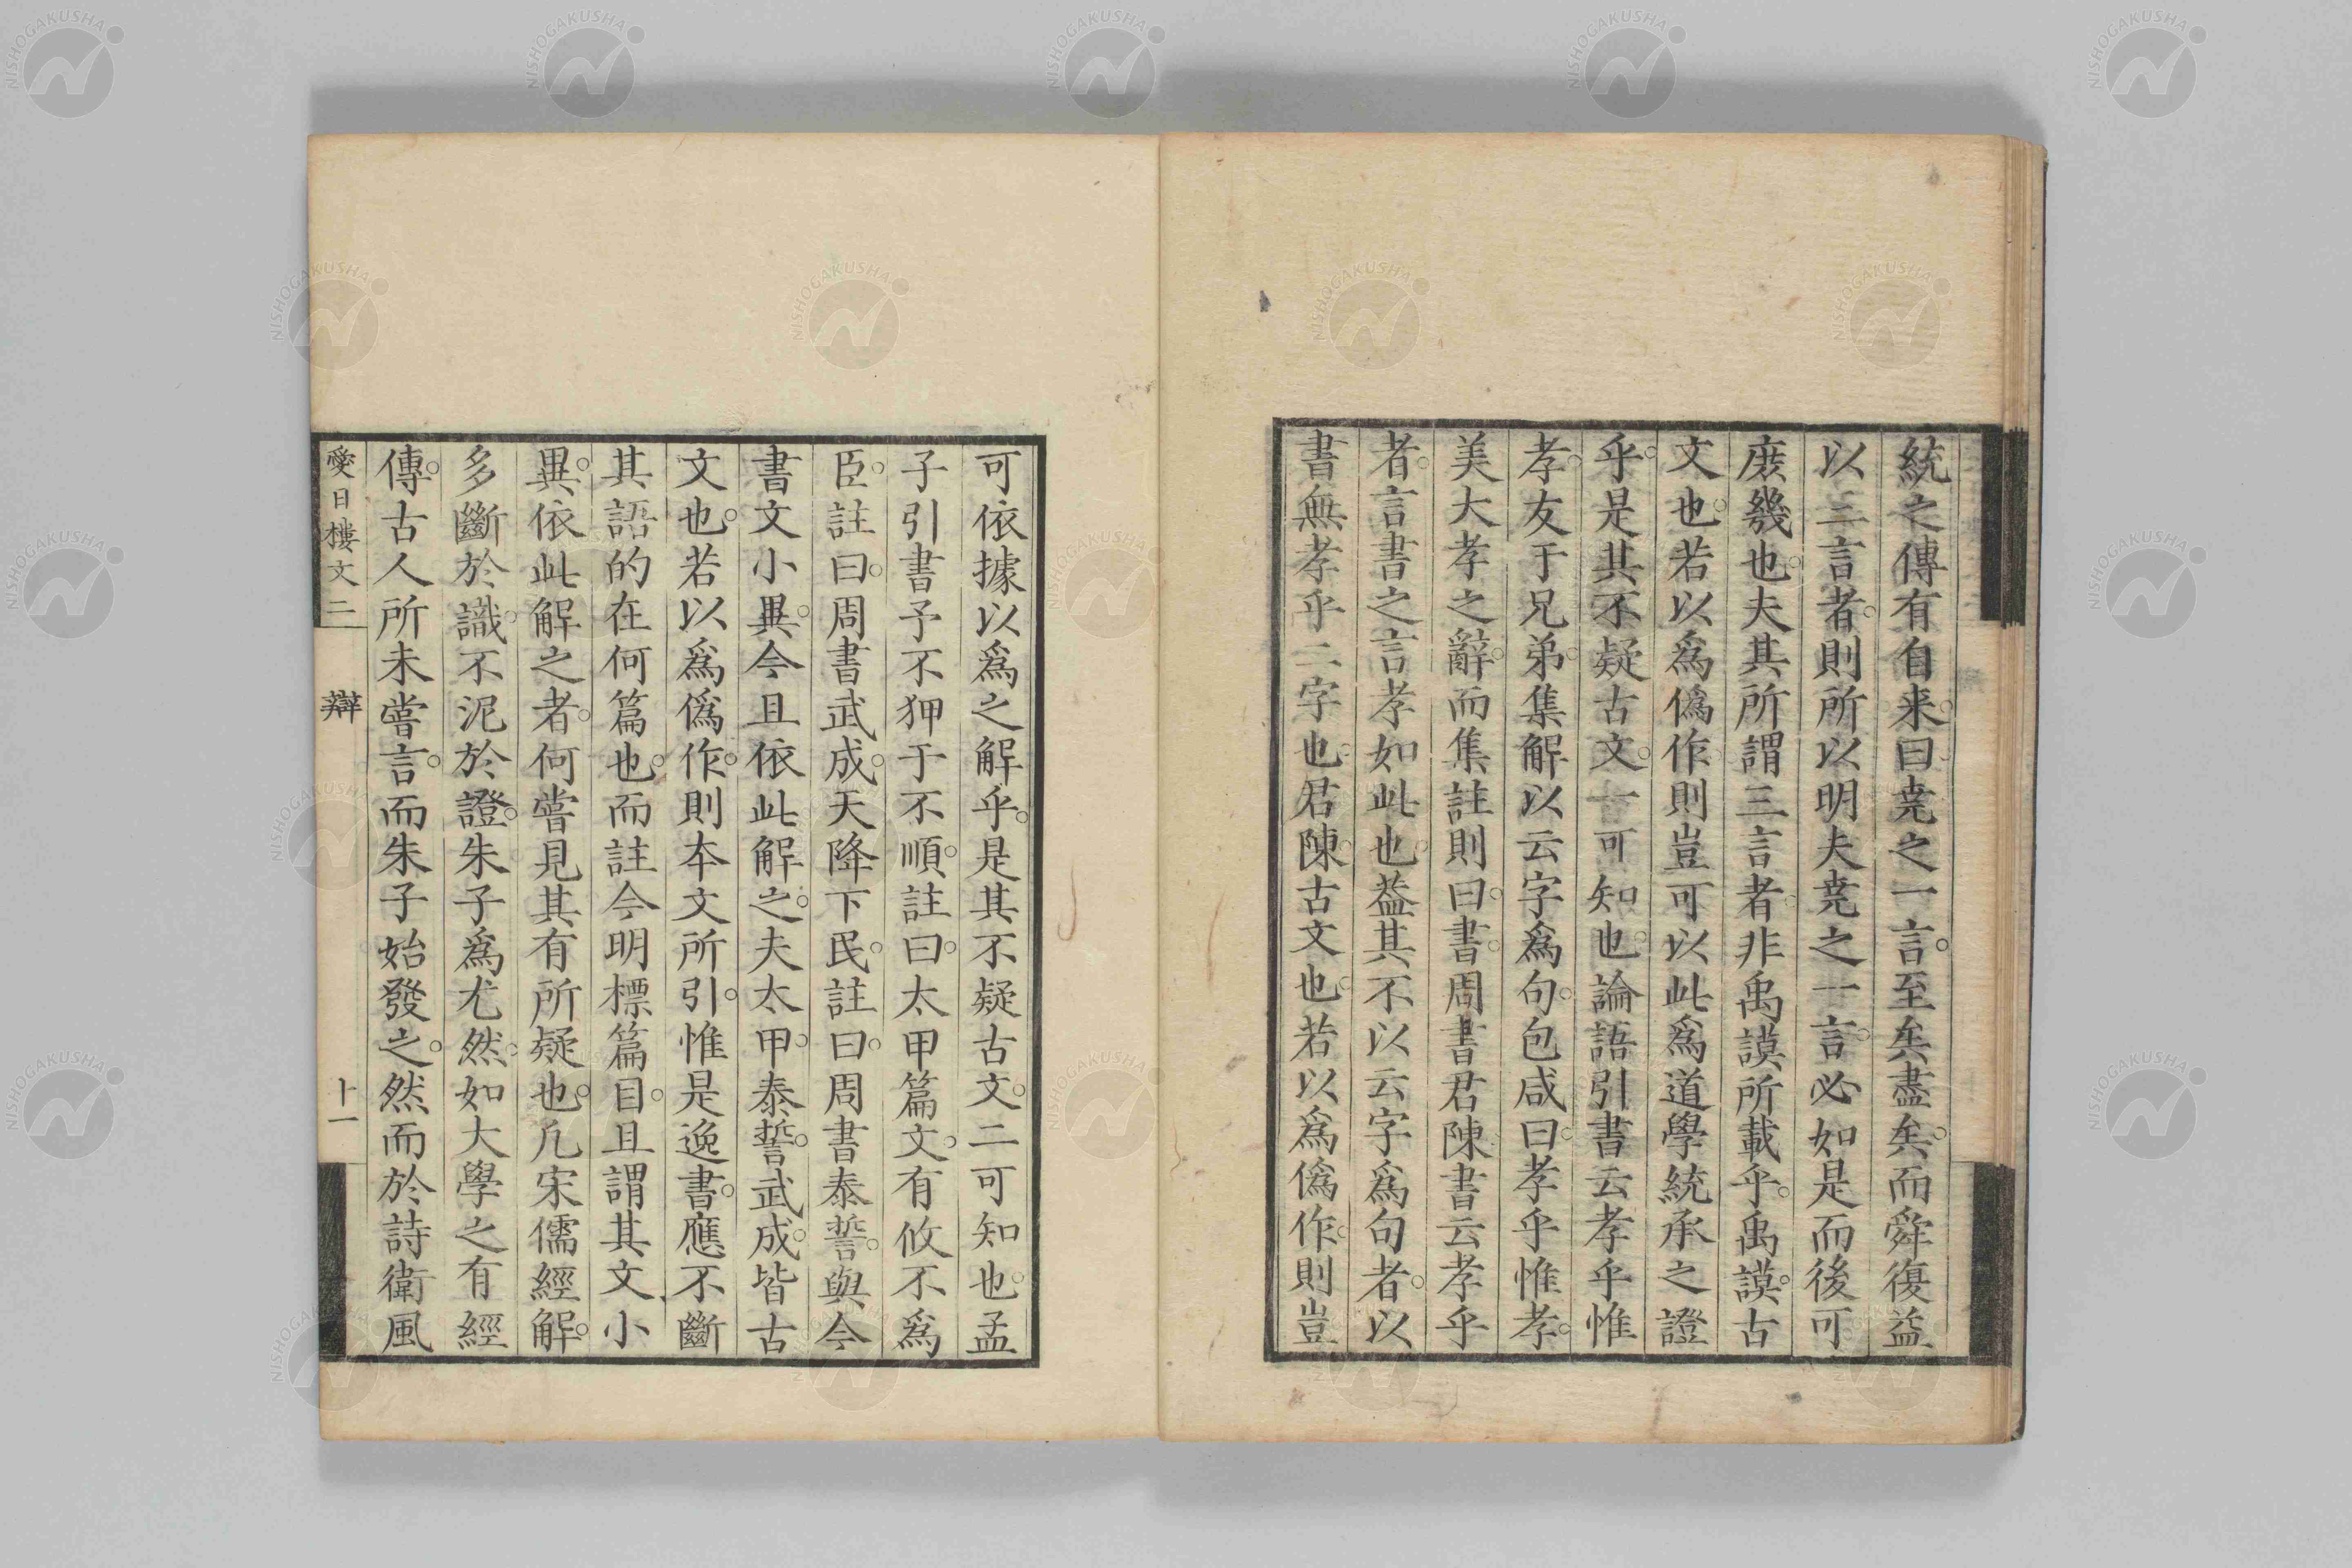 統之傳有自来曰堯之一言至矣盡矣而舜復益
以三言者則所以明夫堯之一言必如是而後可
庶幾也夫其所謂三言者非禹謨所載乎禹謨古
文也若以爲僞作則豈可以此爲道學統承之證
乎是其不疑古文一可知也論語引書云孝乎惟
孝友于兄弟集解以云字爲句包咸曰孝乎惟孝
美大孝之辭而集註則曰書周書君陳書云孝乎
者言書之言孝如此也葢其不以云字爲句者以
書無孝乎二字也君陳古文也若以爲僞作則豈
可依據以爲之解乎是其不疑古文二可知也孟
子引書予不狎于不順註曰太甲篇文有攸不爲
臣註曰周書武成天降下民註曰周書泰誓與今
書文小異今且依此解之夫太甲泰誓武成皆古
文也若以爲僞作則本文所引惟是逸書應不斷
其語的在何篇也而註今明標篇目且謂其文小
異依此解之者何嘗見其有所疑也凡宋儒經解
多斷於識不泥於證朱子爲尤然如大學之有經
傳古人所未嘗言而朱子始發之然而於詩衛風
愛日樓文二 辯 十一
NISHOGAKUSHA